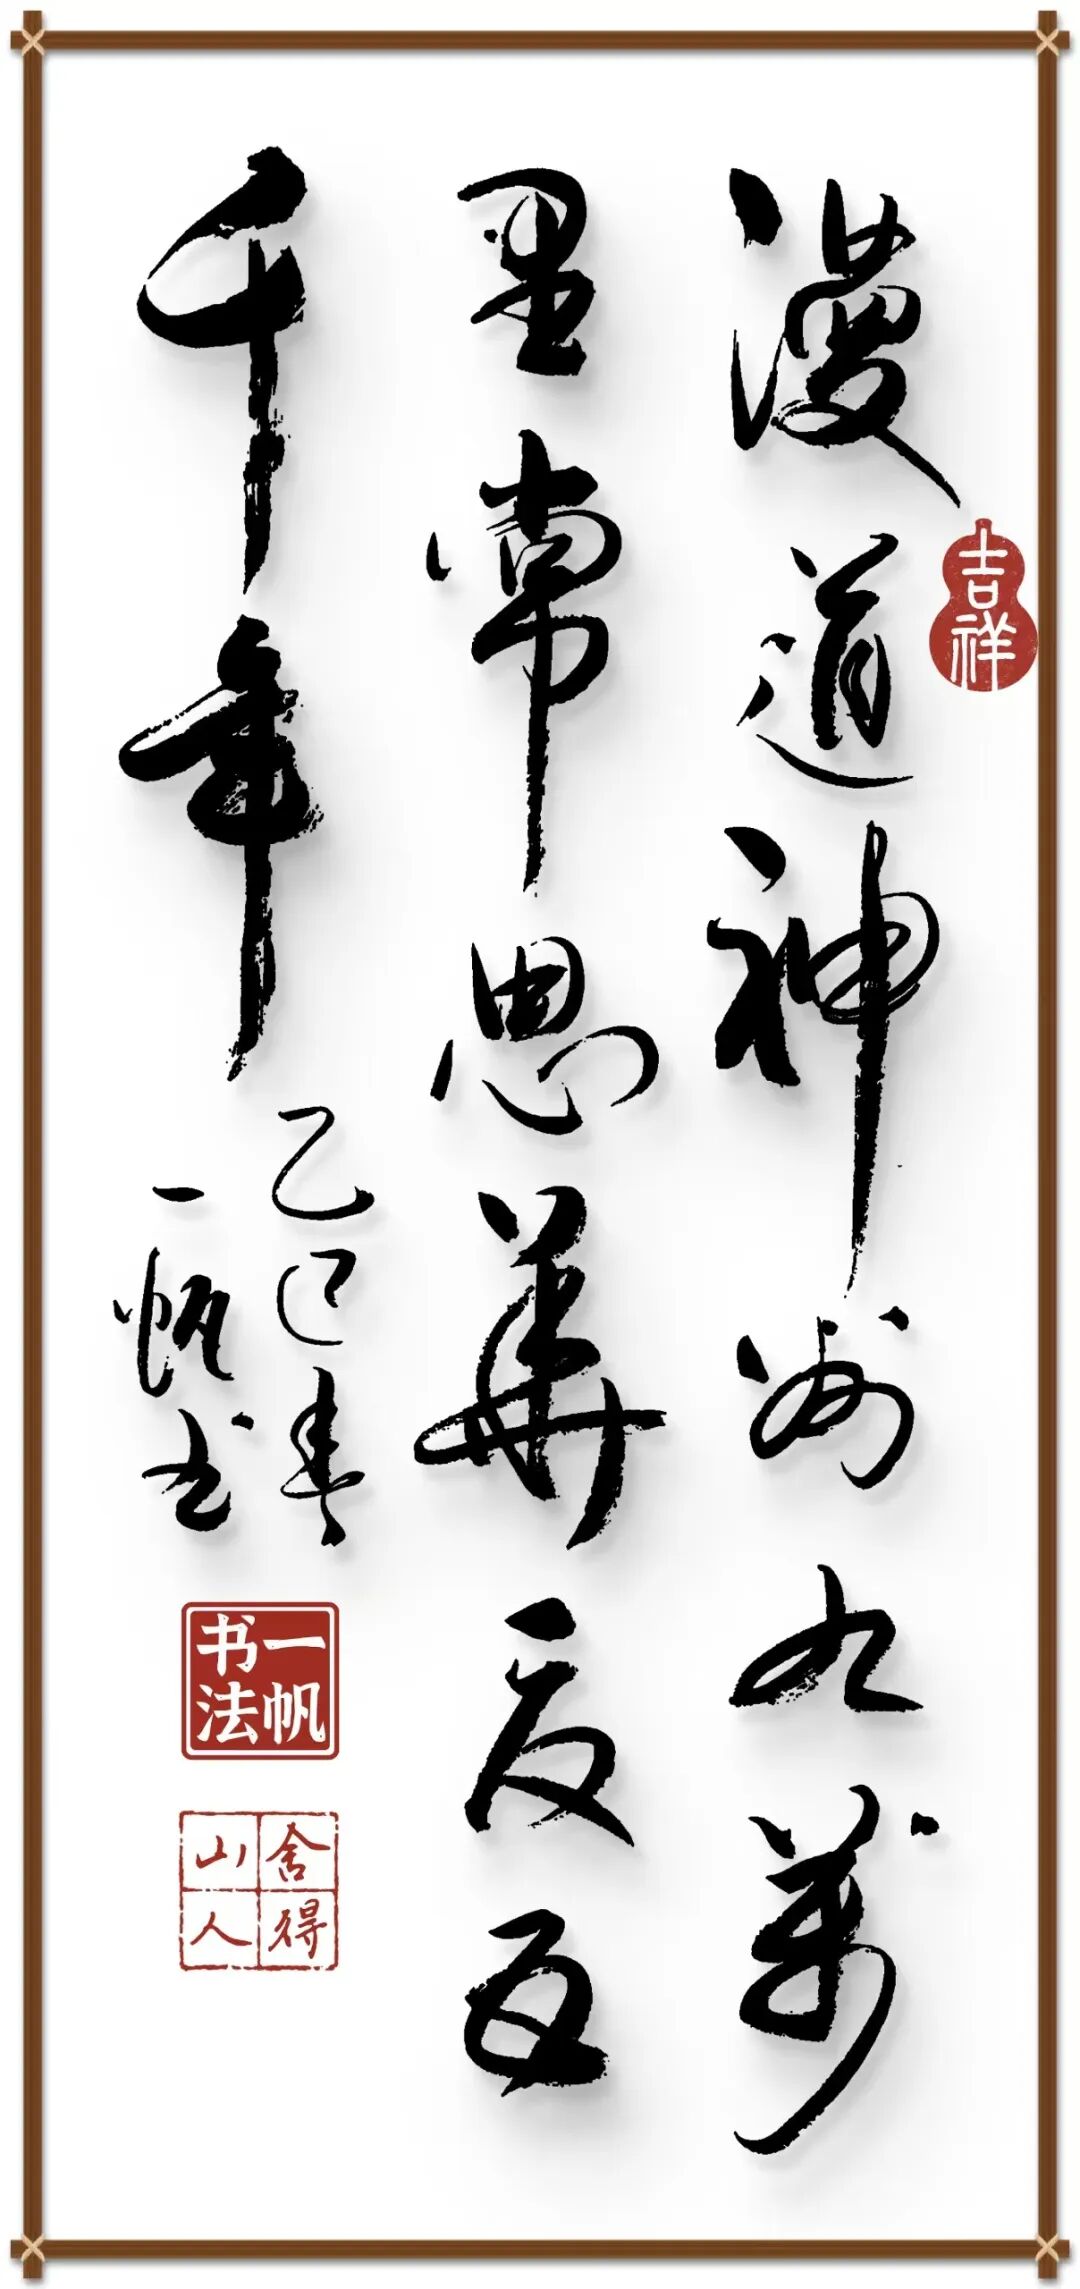 漫道神州九萬
里常思華夏五
千年
乙巳年
一帆书
吉祥
一帆书法
舍得山人